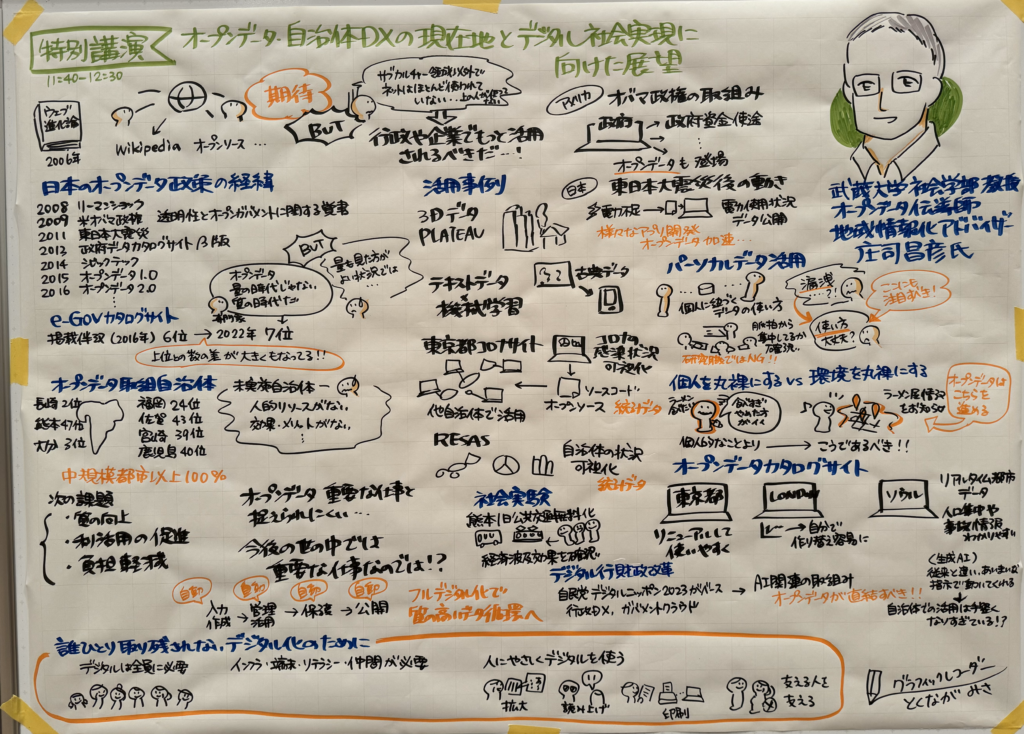 特別講演
11:40-12:30
オープンデータ・自治体DXの現在地とデジタル社会実現に
向けた展望
ウェブ
進化論
2006年
wikipedia オープンソース …
期待
BUT
サブカルチャー領域以外で
ネットはほとんど使われて
いない…
行政や企業でもっと活用
されるべきだ…!
アメリカ
オバマ政権の取組み
政府
政府資金使途
オープンデータも登場
日本
東日本大震災後の動き
電力不足
電力使用状況
データ公開
様々なアプリ開発
オープンデータ加速…
武蔵大学社会学部教授
オープンデータ伝導師
地域情報化アドバイザー
庄司昌彦氏
日本のオープンデータ政策の経緯
2008 リーマンショック
2009 米オバマ政権 透明性とオープンガバメントに関する覚書
2011 東日本大震災
2013 政府データカタログサイトβ版
2014 シビックテック
2015 オープンデータ1.0
2016 オープンデータ2.0
BUT
オープンデータ
量の時代じゃない
質の時代だ
量も見た方が
よい状況では
e-Govカタログサイト
掲載件数(2016年)6位 → 2022年 7位
上位との数の差が大きくもなってる!!
オープンデータ取組自治体
長崎 2位
熊本 47位
大分 3位
福岡 24位
佐賀 43位
宮崎 39位
鹿児島 40位
中規模都市以上100%
未実施自治体
人的リソースがない
効果・メリットがない
活用事例
3Dデータ
PLATEAU
テキストデータ
機械学習
古地データ
東京都コロナサイト
コロナの
感染状況
可視化
ソースコード
オープンソース
統計データ
他自治体で活用
RESAS
自治体の状況
可視化
統計データ
パーソナルデータ活用
個人に紐づく
データの使い方
漏洩…?
ここにも
注目すべき!
使い方
大丈夫?
脈拍から
集中してるか
研究段階ではNG!!
個人を丸裸にする vs 環境を丸裸にする
食べすぎ
やめた方
がイイ
ラーメン屋情報
をお知らせ
オープンデータは
こちらを
進める
個人的なことより → こうであるべき!!
オープンデータカタログサイト
東京都
リニューアルして
使いやすく
LONDON
自分で
作り替え容易に
ソウル
リアルタイム都市
データ
人口集中や
事故情報
次の課題
・質の向上
・利活用の促進
・負担軽減
オープンデータ 重要な仕事と
捉えられにくい…
今後の世の中では
重要な仕事なのでは!?
自動
自動
自動
自動
入力
作成
管理
活用
保護
公開
フルデジタル化で
質の高いデータ循環へ
社会実験
熊本1日公共交通無料化
経済波及効果を確認
デジタル行財政改革
自民党デジタルニッポン2023がベース
行政DX、ガバメントクラウド
AI関連の取組み
オープンデータが直結すべき!!
(生成AI)
従来と違い、あいまいな
指示で動いてくれる
自治体での活用は手堅く
なりすぎている!?
誰ひとり取り残されないデジタル化のために
デジタルは全員に必要
インフラ・端末・リテラシー・仲間が必要
人にやさしくデジタルを使う
拡大
読み上げ
印刷
支える人を
支える
グラフィックレコーダー
とくなが みさ